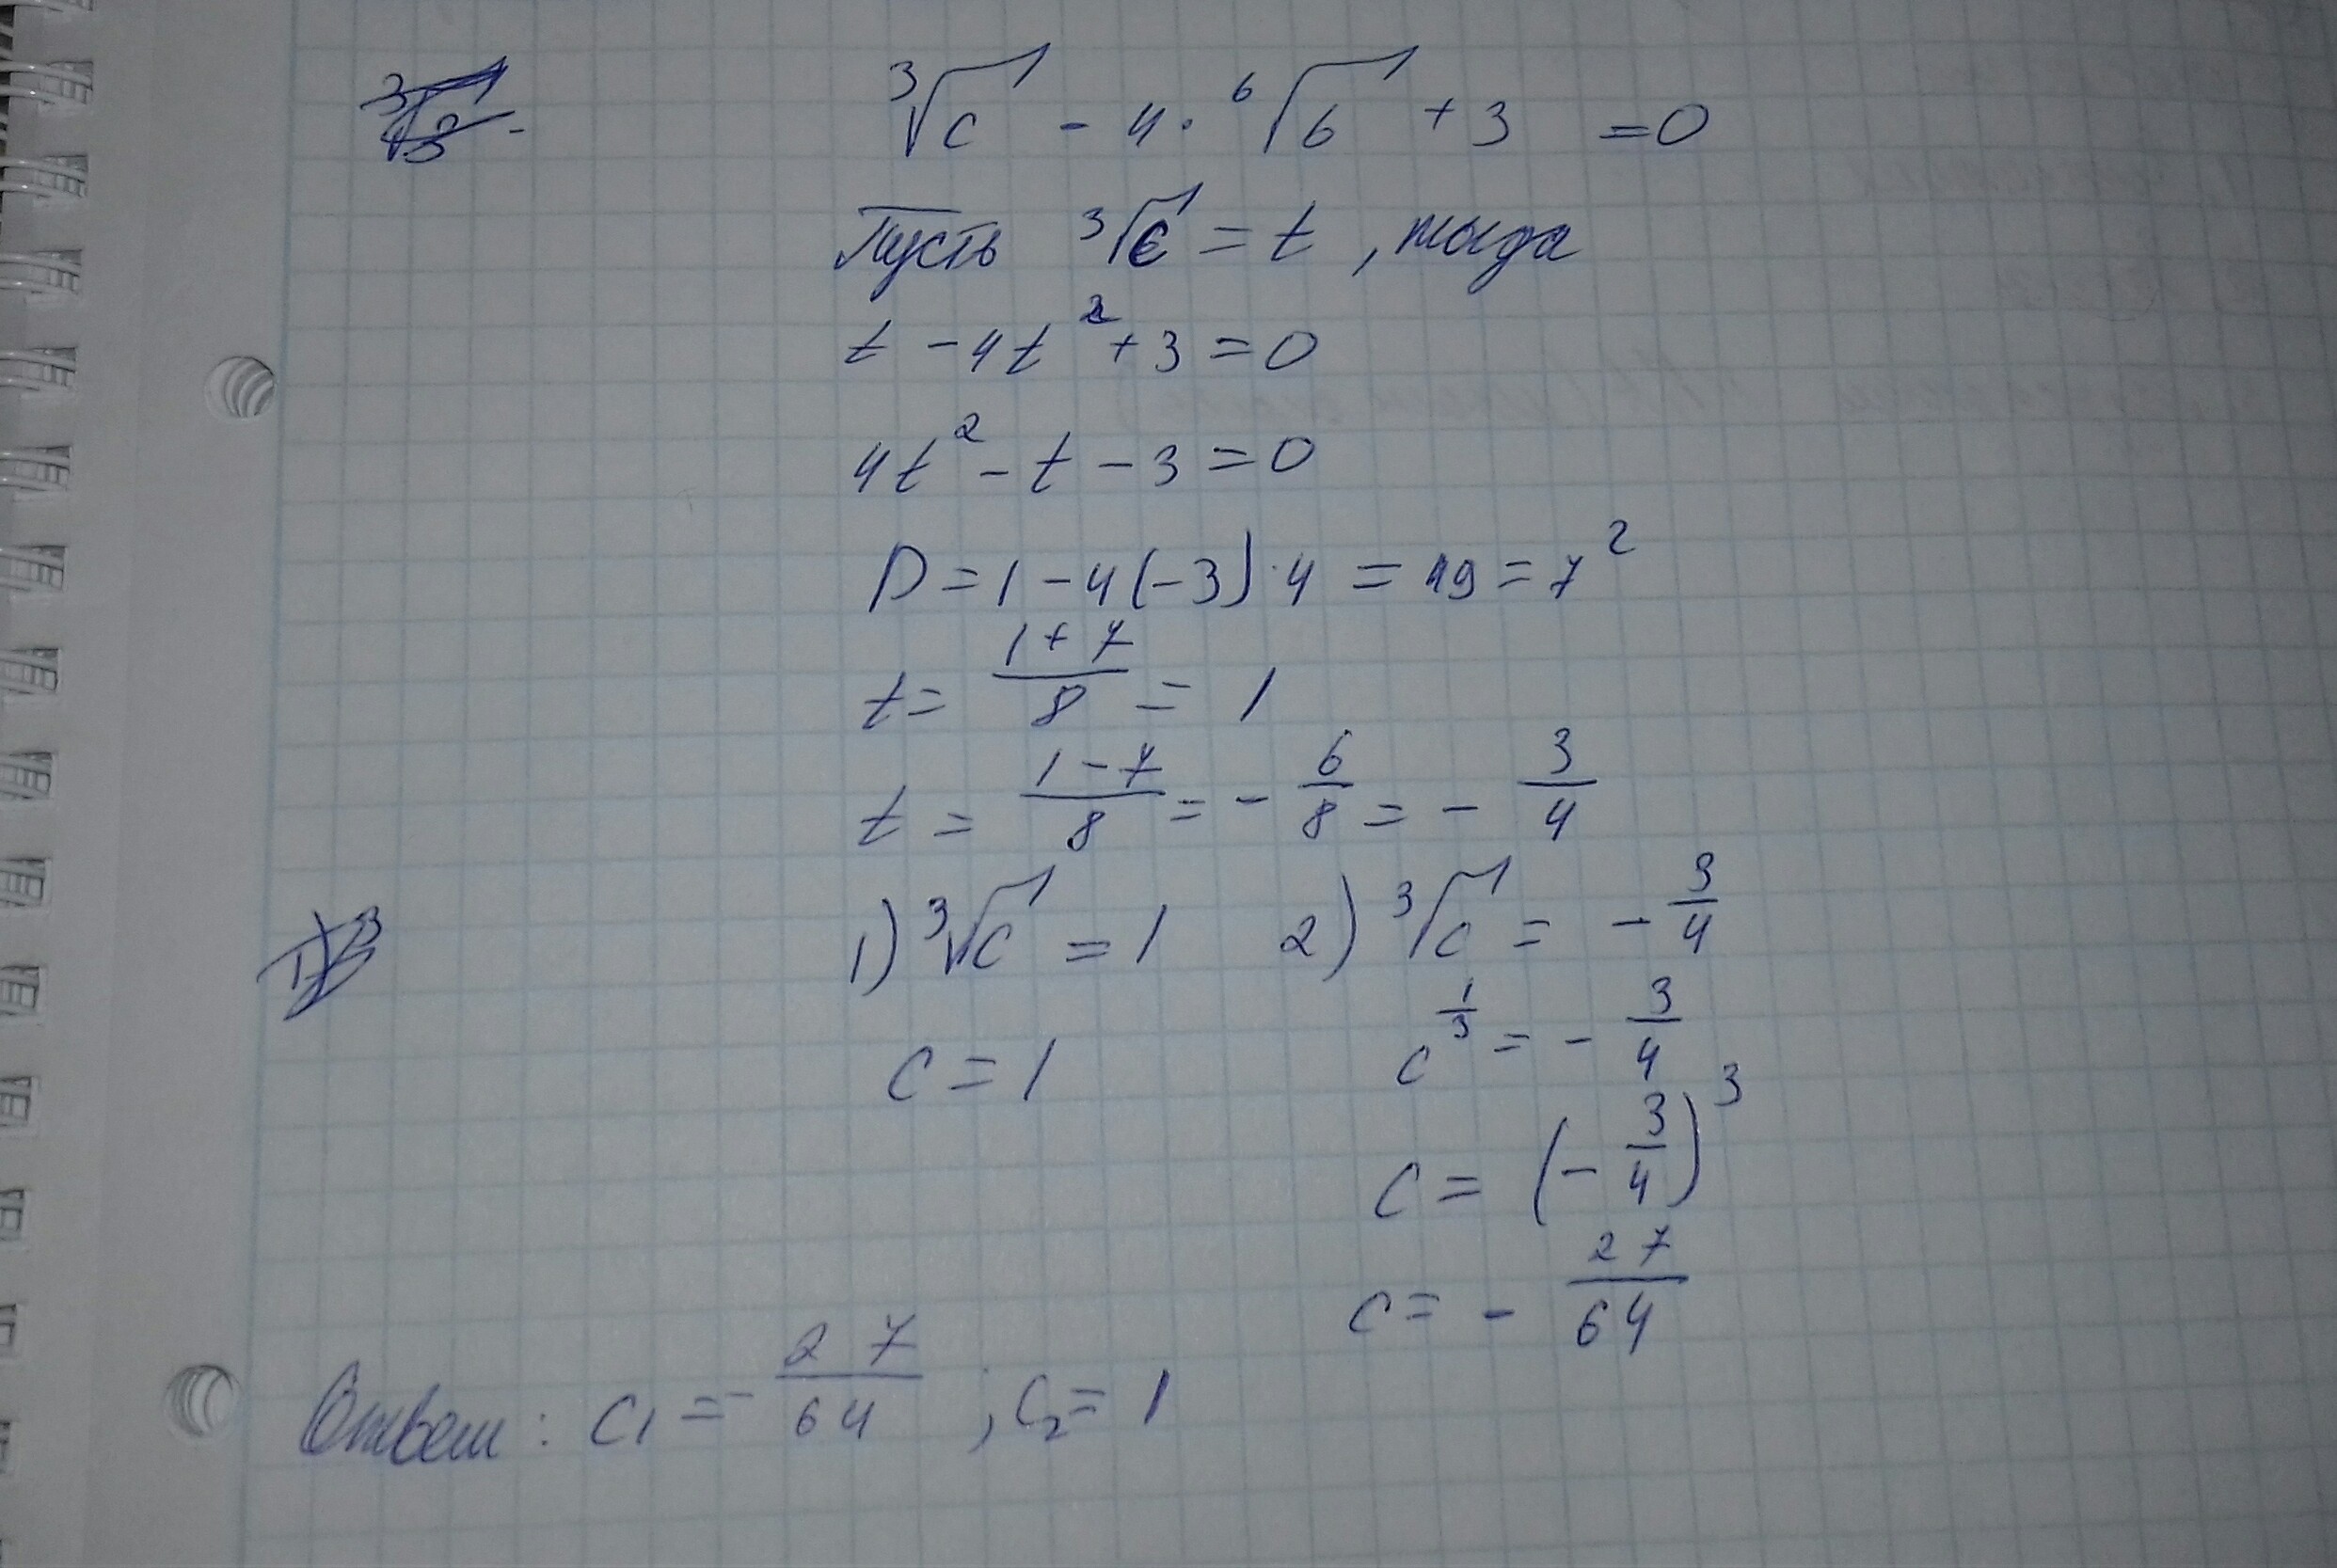 ∛c - 4 · ⁶√6 + 3 = 0
Пусть ∛c = t, тогда
t - 4t² + 3 = 0
4t² - t - 3 = 0
D = 1 - 4(-3) · 4 = 49 = 7²
t = (1 + 7)/8 = 1
t = (1 - 7)/8 = - 6/8 = - 3/4
1) ∛c = 1 2) ∛c = - 3/4
c^(1/3) = - 3/4
c = 1
c = (- 3/4)³
c = - 27/64
Ответ: c₁ = - 27/64 ; c₂ = 1